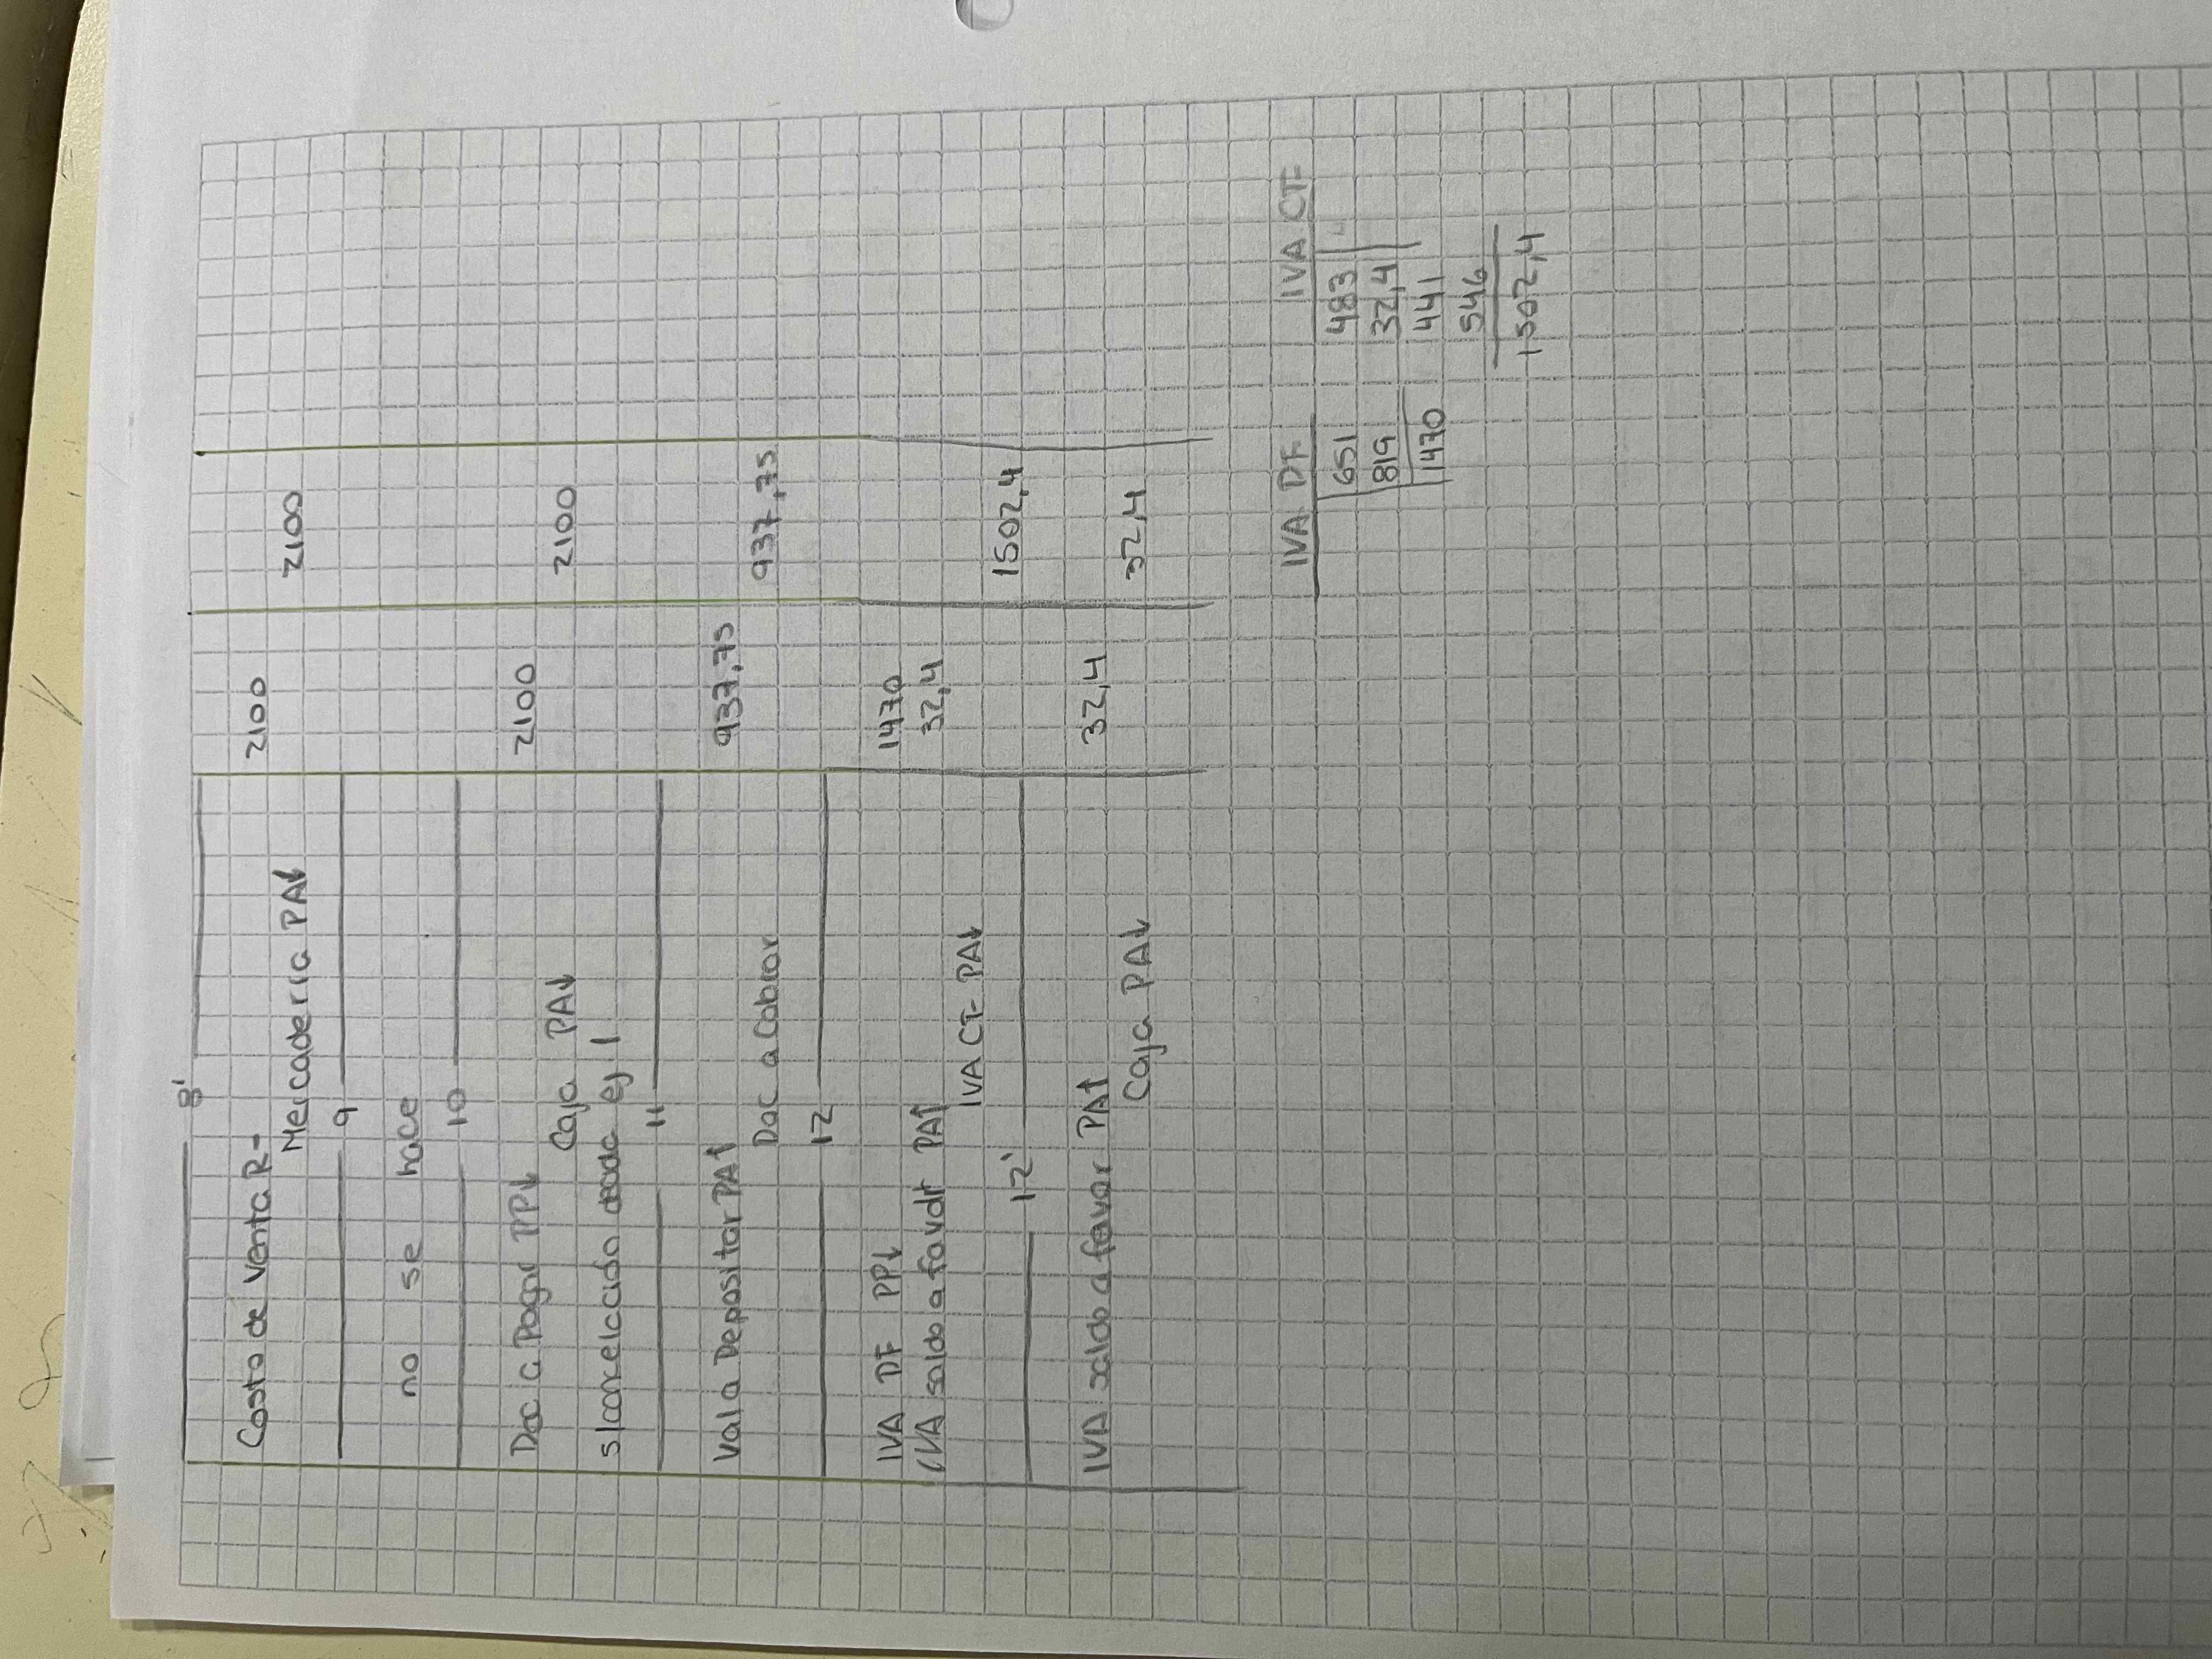 8'
Costo de Venta R- 2100
Mercaderia PA↓ 2100
9
no se hace
10
Doc a Pagar PP↓ 2100
Caja PA↓ 2100
ej 1
11
Val a Depositar PA↑ 937,75
Doc a Cobrar 937,75
12
IVA DF PP↓ 1470
IVA saldo a favor PA↑ 32,4
IVA CF PA↓ 1502,4
12'
IVA saldo a favor PA↑ 32,4
Caja PA↓ 32,4
IVA DF IVA CF
651 483
819 32,4
1470 441
546
1502,4